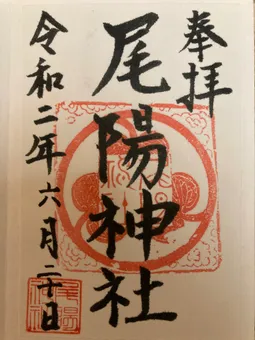 奉拝
尾陽神社
令和二年六月二十日